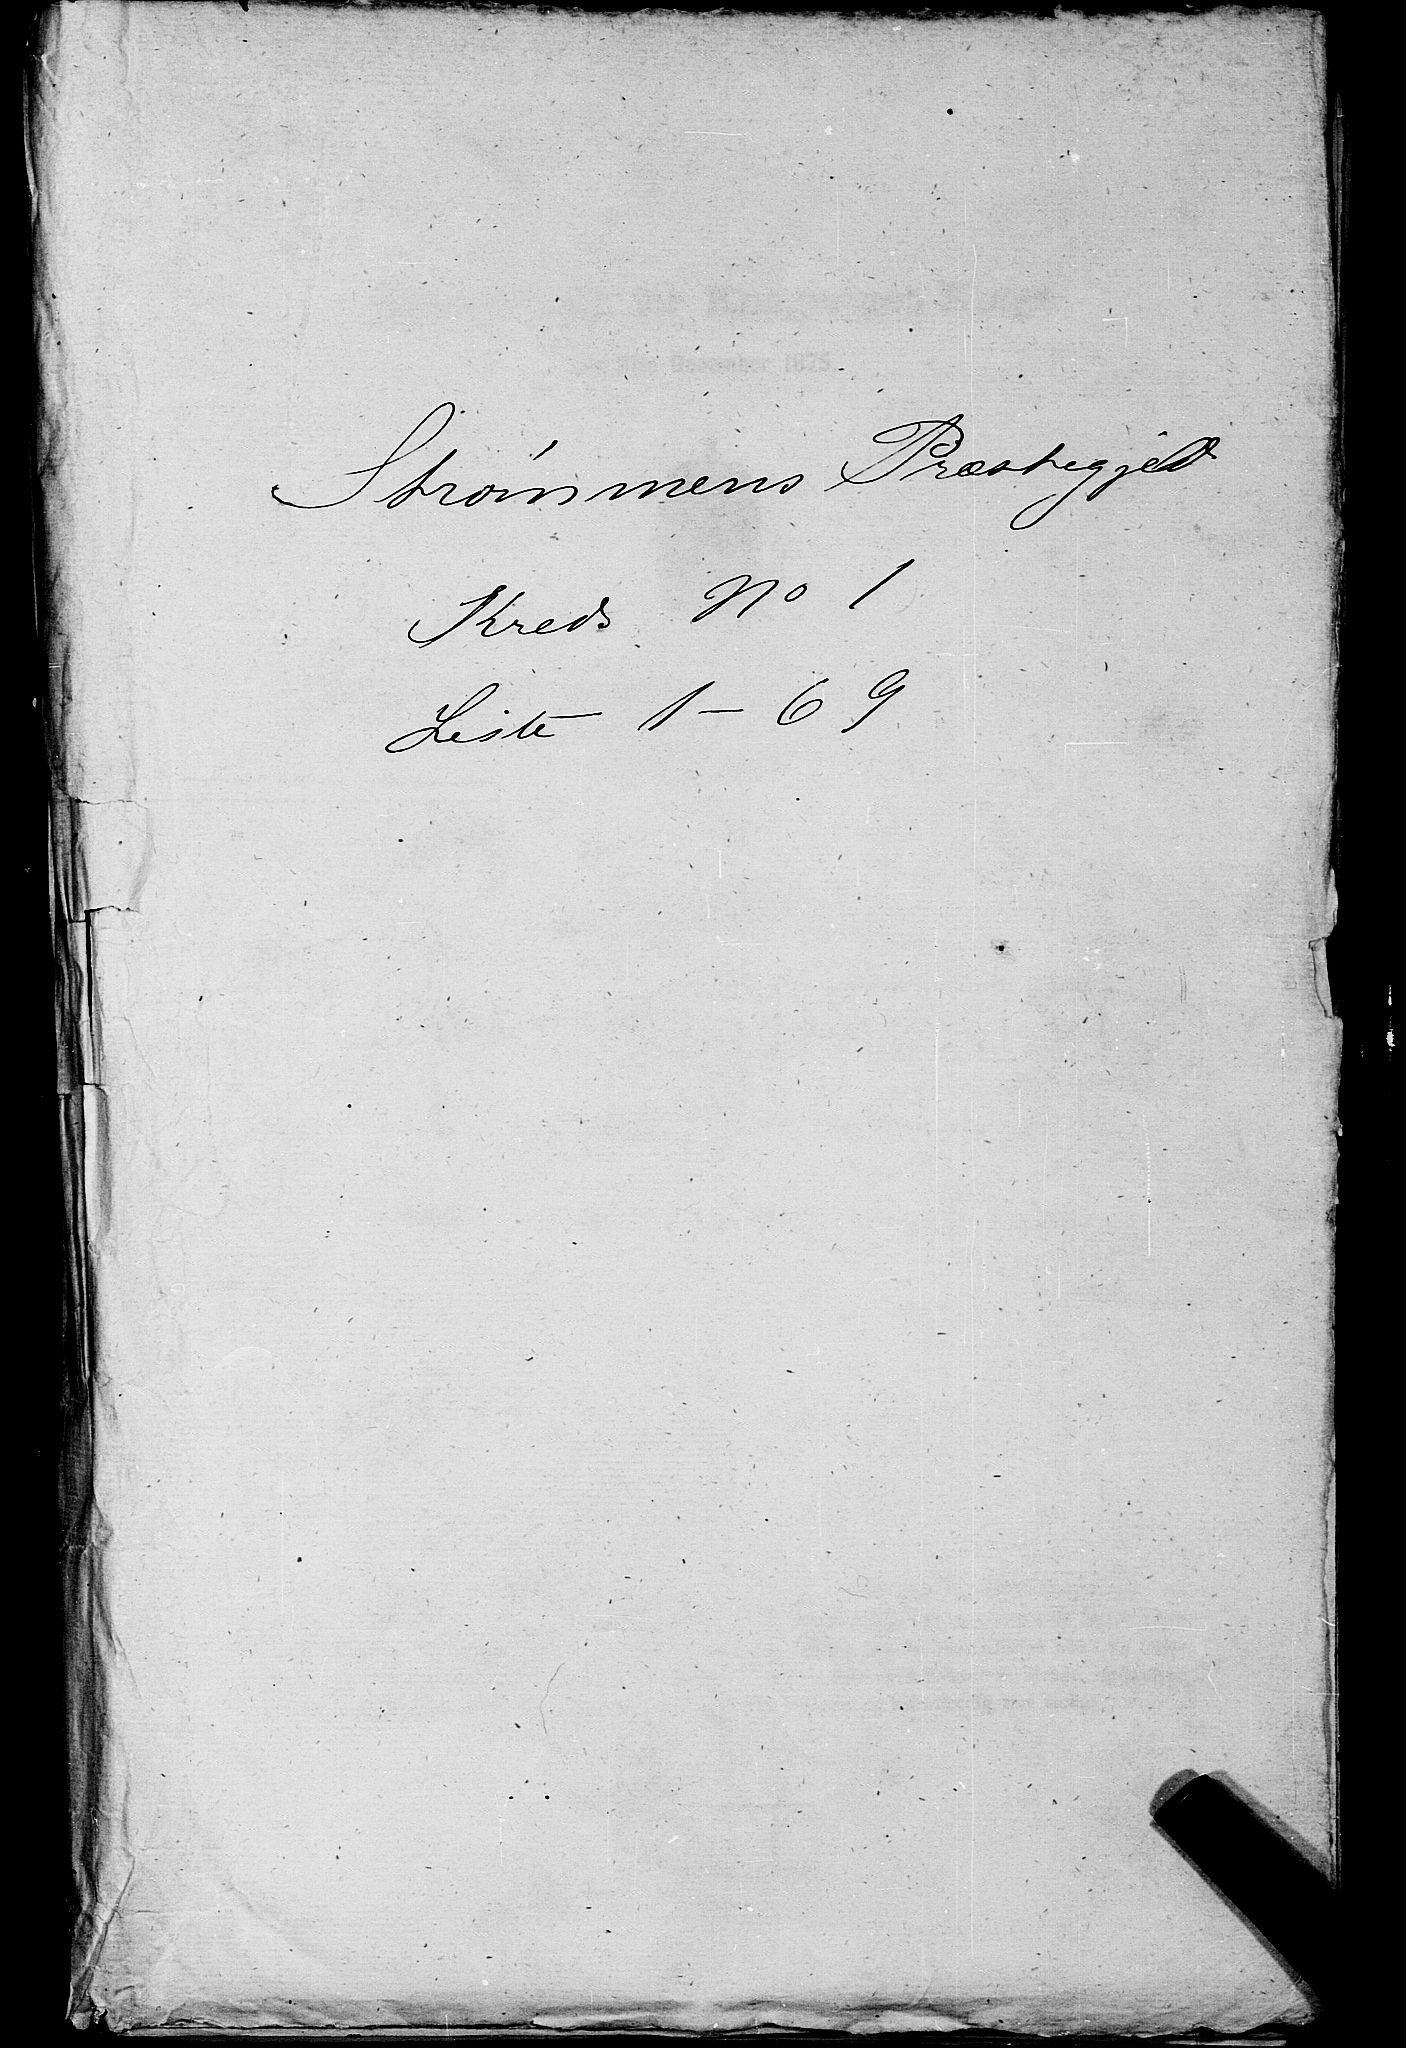 Strømmens Præstegjeld
Kreds No 1
Liste 1 - 69
December 1875